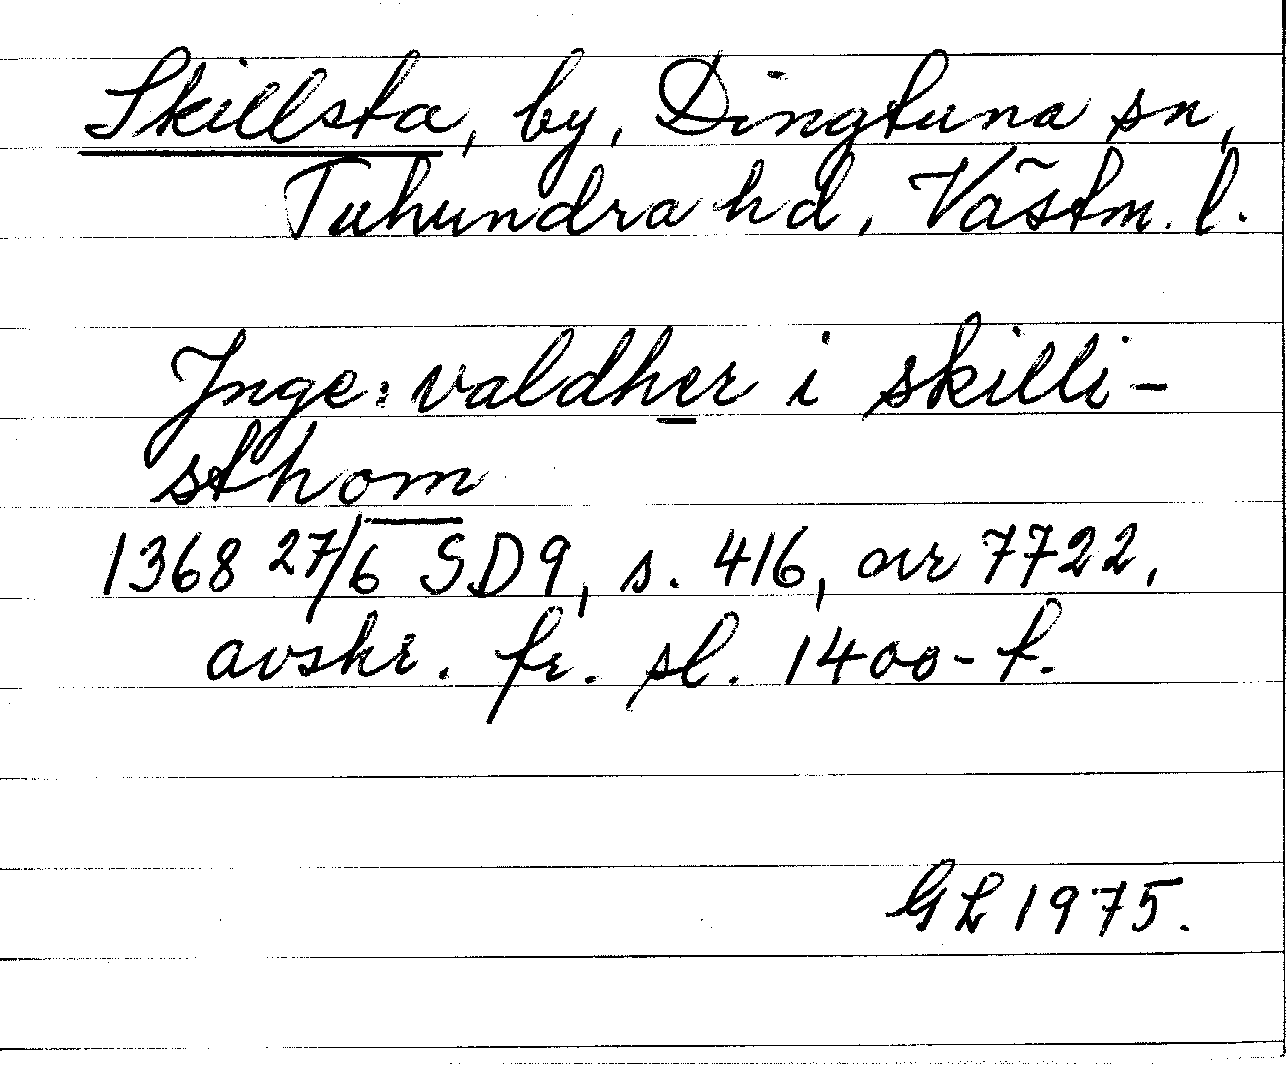 Skillsta, by, Dingtuna sn,
Tuhundra hd, Västm. l.
Inge:valdher i skilli-
sthom
1368 27/6 SD9, s. 416, nr 7722,
avskr. fr. sl. 1400-t.
GL 1975.